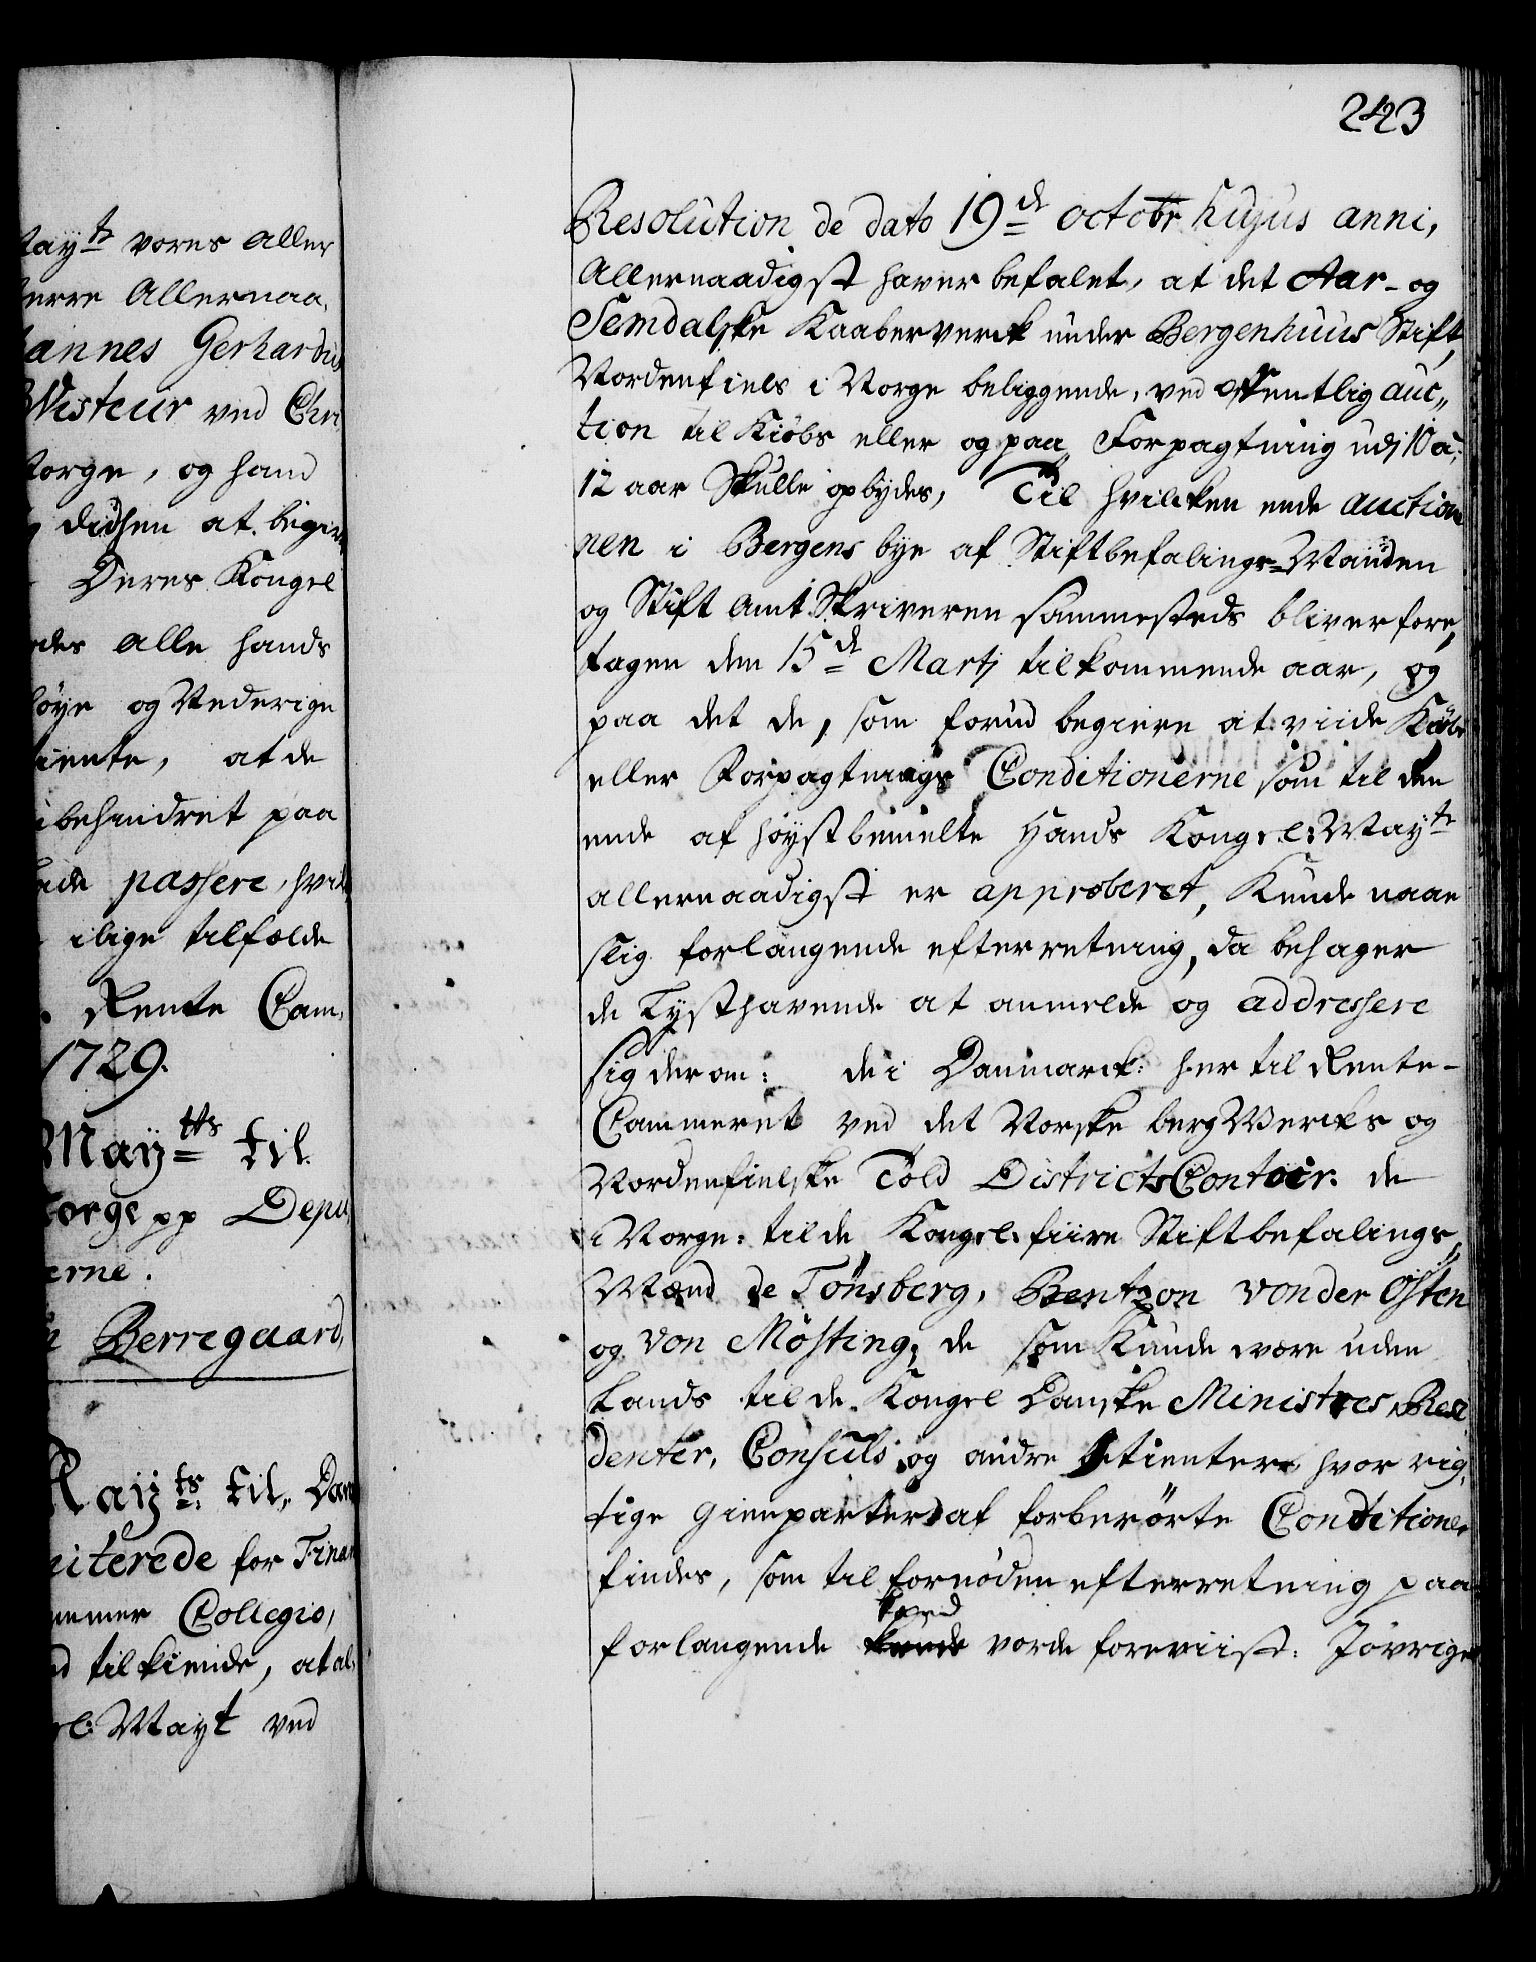 243
Mayts vores aller
herre Allernaa,
hannes Gerhardus
Visiteur ved Chri
Norge, og hand
didhen at begive
Deres Kongel
alle hands
høye og Nederige
tiente, at de
ubehindret paa
passere, hvil
ilige tilfælde
Rente Cam,
1729.
Maytts til
Norge pp Depu,
erne.
Berregaard,
Mayts: til Dan
uterede for Finan
ammer Collegio,
tilkiende, at al,
gl: Mayt ved
Resolution de dato 19de octobr hujus anni,
Allernaadigst haver befalet, at det Aar- og
Semdalske Kaaberverck under Bergenhuus Stift,
Nordenfiels i Norge beliggende, ved offentlig auc„
tion til Kiøbs eller og paa Forpagtning udj 10 a,
12 aar Skulle opbydes, Til hvilcken ende auctio
nen i Bergens bye af Stiftbefalings-Manden
og Stift Amt Skriveren sammesteds bliver fore,
tagen den 15de Martj tilkommende aar, og
paa det de, som forud begiere at viide Kiøbs
eller Forpagtnings Conditionerne som til den
ende af høystbemelte Hands Kongel: Mayts
allernaadigst er approberet, Kunde naae
slig forlangende efterretning, da behager
de Lysthavende at anmelde og addressere
sig derom: de i Danmarck: her til Rente-
Cammeret ved det Norske bergWercks og
Nordenfielske Told Districts Contoir. de
i Norge: til de Kongel. fiire Stiftbefalings„
Mænd de Tønsberg, Bentzon von der Østen
og von Møsting; de som Kunde være uden
Lands til de Kongel Danske Ministres, Resi
denter, Consuls og andre betientere hvor rig„
tige Gienparter af forberørte Conditioner
findes, som til fornøden efterretning paa
kand
forlangende kunde vorde foreviist: Jøvrigt